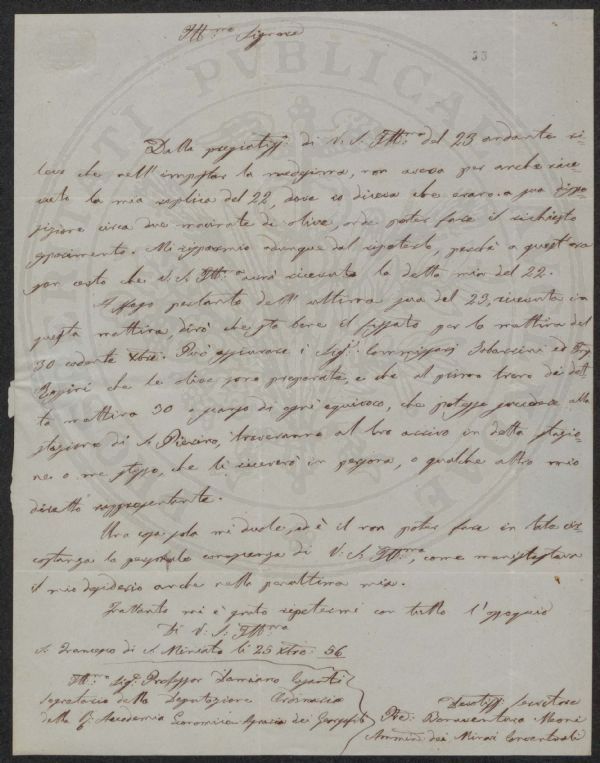 Ill.mo Signore
53
Dalla pregiatiss. di V. S. Ill.ma del 23 andante ri-
levo che nell'impostar la medesima, non aveva per anche rice-
vuto la mia replica del 22, dove io diceva che erano a sua dispo-
sizione circa due macinate di olive, onde poter fare il richiesto
esperimento. Mi risparmio adunque dal ripeterlo, perchè a quest'ora
son certo che V. S. Ill.ma avrà ricevuto la detta mia del 22.
A sfogo pertanto dell'ultima sua del 23, ricevuta in
questa mattina, dirò che sta bene il fissato per la mattina del
30 cadente Xbre. Può assicurare i Sig.i Commissarj ed
che le olive sono preparate, e che al primo treno di det-
ta mattina 30 a scanso di ogni equivoco, che potesse succedere alla
stazione di S. Pierino, troveranno al loro arrivo in detta stazio-
ne o me stesso, che li riceverò in persona, o qualche altro mio
diretto rappresentante.
Una cosa sola mi duole, ed è il non poter fare in tale cir-
costanza la personale conoscenza di V. S. Ill.ma, come manifestava
il mio desiderio anche nella penultima mia.
Frattanto mi è grato ripetermi con tutto l'ossequio
Di V. S. Ill.ma
S. Francesco di S. Miniato li 25 Xbre 56
Ill.mo Sig. Professor Damiano
Segretario della Deputazione Ordinaria
della R. Accademia Economico Agraria dei Georgofili
Devotiss. Servitore
Bonaventura
dei Minori Conventuali